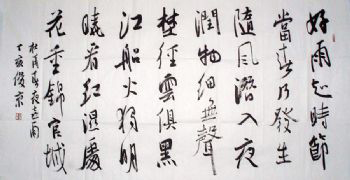 好雨知時節
當春乃發生
隨風潛入夜
潤物細無聲
埜徑雲俱黑
江船火獨明
曉看紅濕處
花重錦官城
杜甫春夜喜雨
丁亥俊京